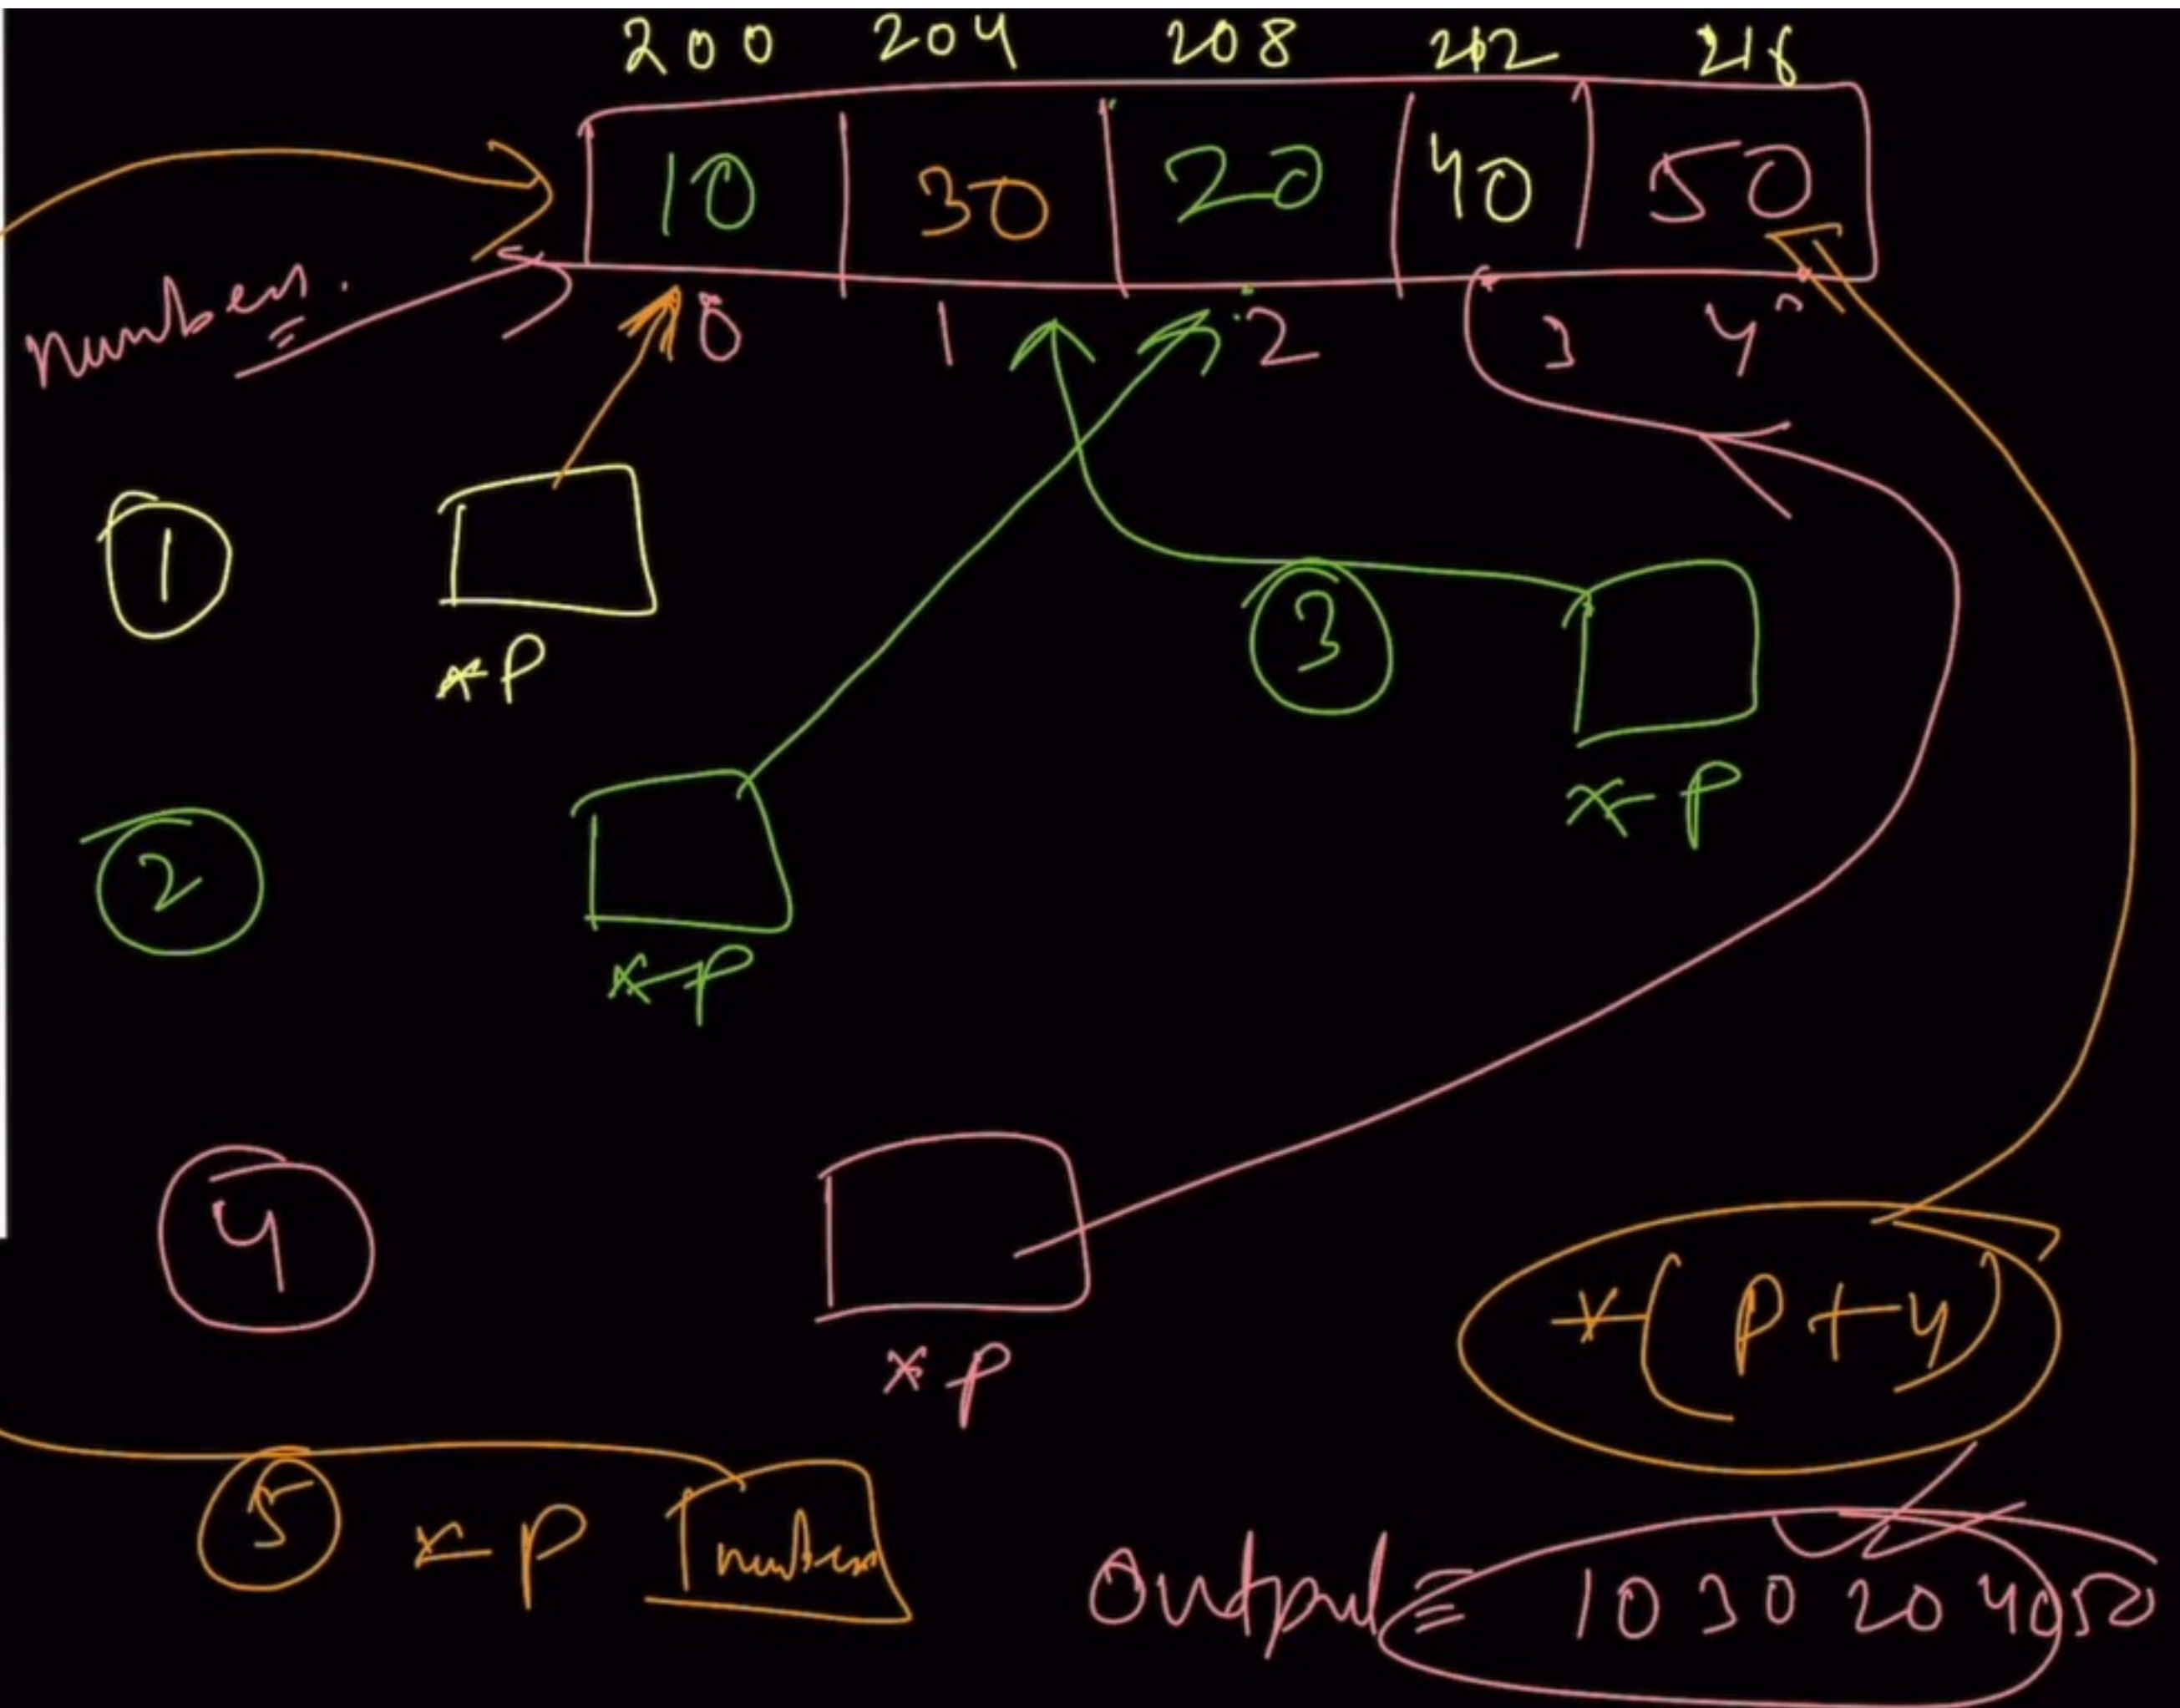 200 204 208 212 216
10 30 20 40 50
numbers.
0 1 2 3 4
1
*P
3
*P
2
*P
4
*P
*(P+4)
5 *P numbers
Output = 10 30 20 40 50